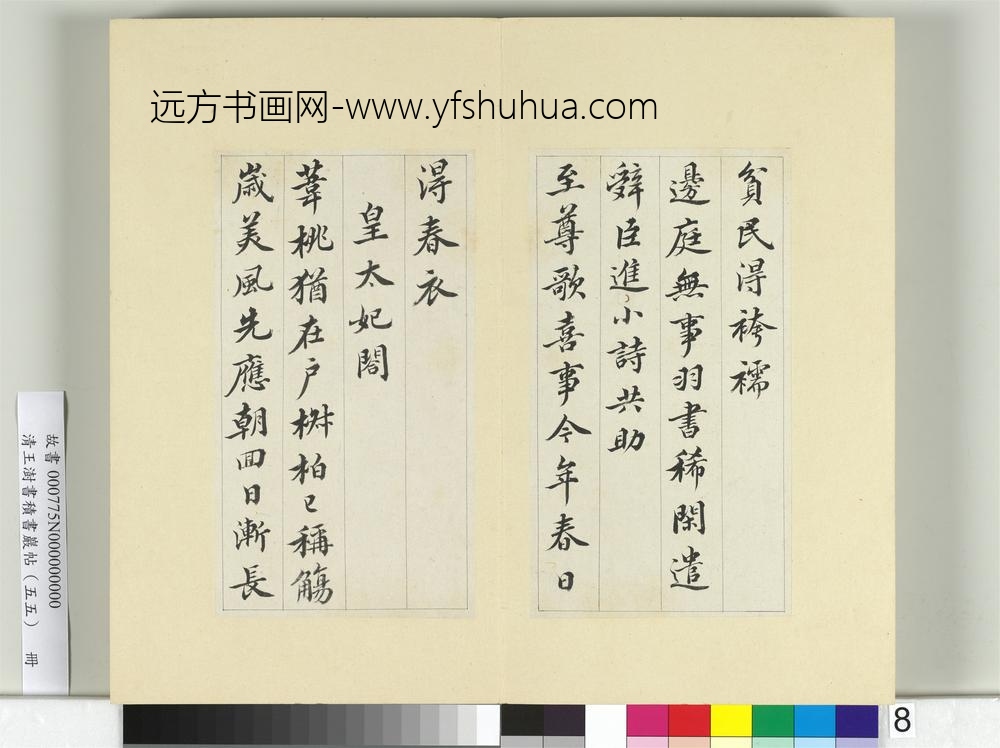 远方书画网-www.yfshuhua.com
貧民得袴襦
邊庭無事羽書稀閑遣
辭臣進小詩共助
至尊歌喜事今年春日
得春衣
皇太妃閤
葦桃猶在户椒柏已稱觴
歲美風先應朝回日漸長
故書 000775N000000000
清王澍書積書巖帖（五五） 冊
8